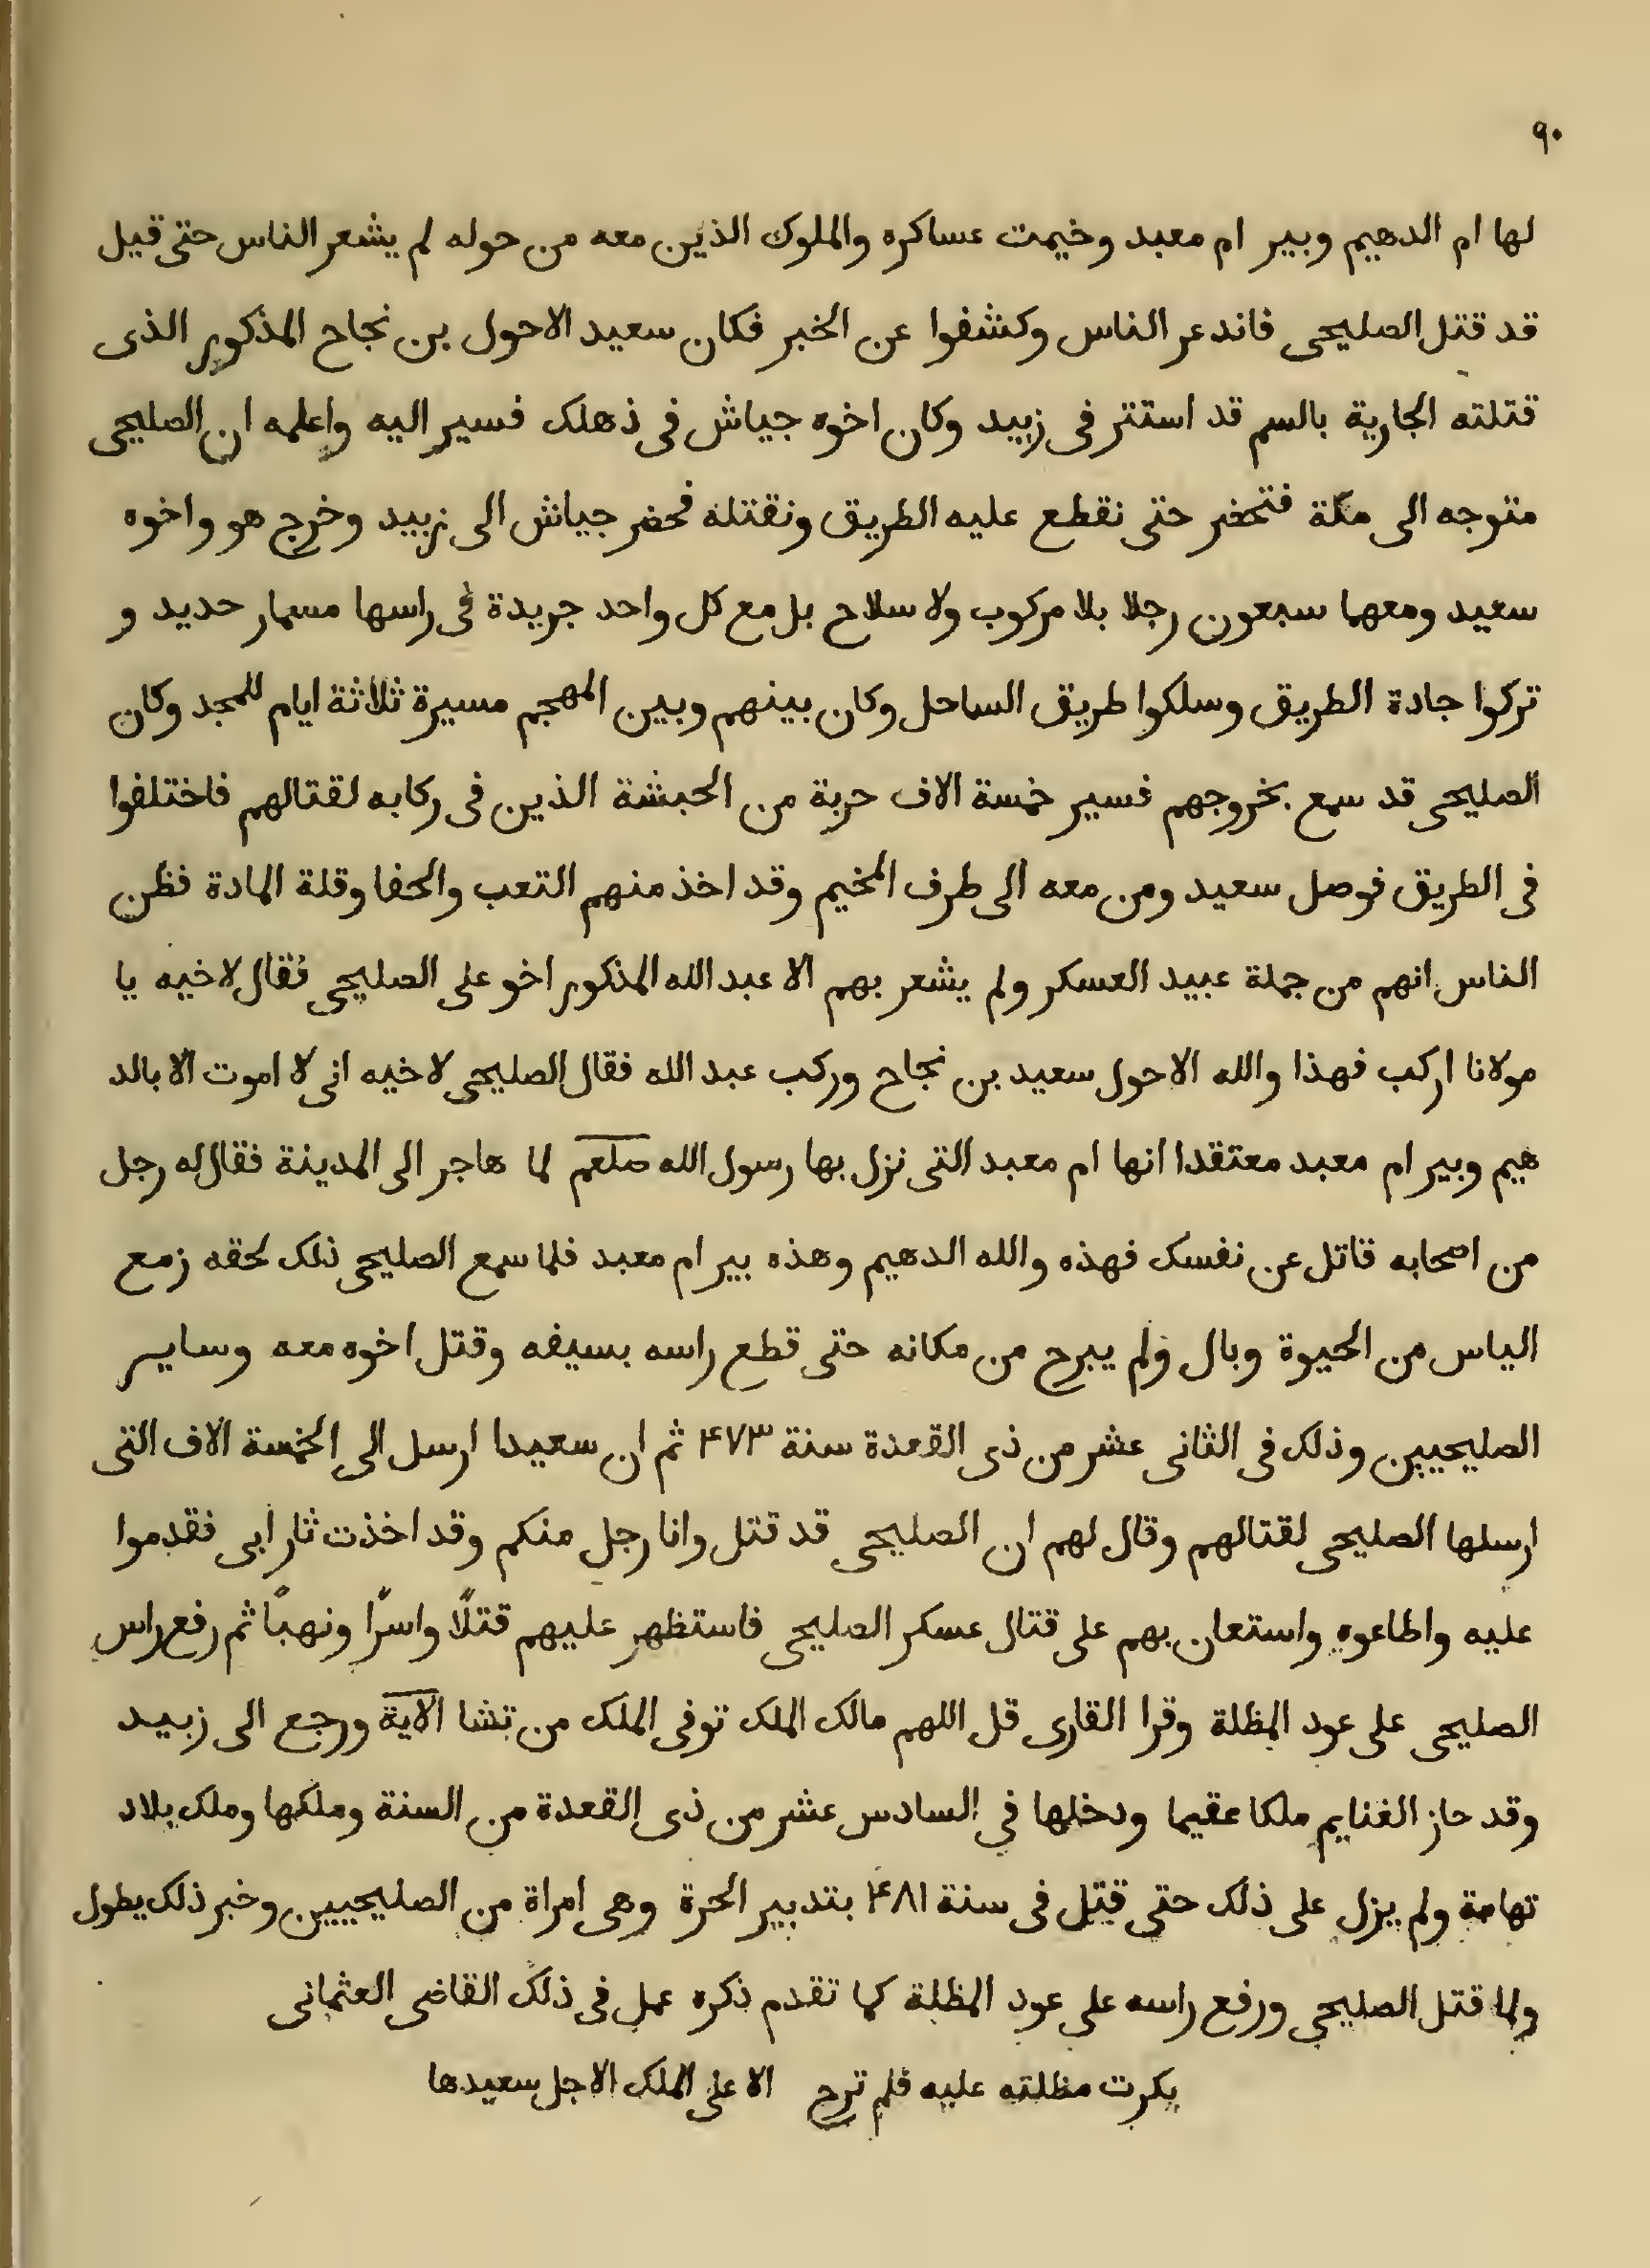 ٩٠
لها ام الدهيم وبير ام معبد وخيمت عساكره والملوك الذين معه من حوله لم يشعر الناس حتى قيل
قد قتل الصليحى فاندعر الناس وكشفوا عن الخبر فكان سعيد الاحول بن نجاح المذكور الذى
قتلته الجارية بالسم قد استتر فى زبيد وكان اخوه جياش فى ذهلك فسير اليه واعلمه ان الصليحى
متوجه الى مكة فتحضر حتى نقطع عليه الطريق ونقتله فحضر جياش الى زبيد وخرج هو واخوه
سعيد ومعهما سبعون رجلا بلا مركوب ولا سلاح بل مع كل واحد جريدة فى راسها مسمار حديد و
تركوا جادة الطريق وسلكوا طريق الساحل وكان بينهم وبين المهجم مسيرة ثلاثة ايام للمجد وكان
الصليحى قد سمع بخروجهم فسير خمسة الاف حربة من الحبشة الذين فى ركابه لقتالهم فاختلفوا
فى الطريق فوصل سعيد ومن معه الى طرف المخيم وقد اخذ منهم التعب والحفا وقلة المادة فظن
الناس انهم من جملة عبيد العسكر ولم يشعر بهم الا عبد الله المذكور اخو على الصليحى فقال لاخيه يا
مولانا اركب فهذا والله الاحول سعيد بن نجاح وركب عبد الله فقال الصليحى لاخيه انى لا اموت الا بالد
هيم وبير ام معبد معتقدا انها ام معبد التى نزل بها رسول الله صلعم لما هاجر الى المدينة فقال له رجل
من اصحابه قاتل عن نفسك فهذه والله الدهيم وهذه بير ام معبد فلما سمع الصليحى ذلك لحقه زمع
الياس من الحيوة وبال ولم يبرح من مكانه حتى قطع راسه بسيفه وقتل اخوه معه وساير
الصليحيين وذلك فى الثانى عشر من ذى القعدة سنة ۴٧٣ ثم ان سعيدا ارسل الى الخمسة الاف التى
ارسلها الصليحى لقتالهم وقال لهم ان الصليحى قد قتل وانا رجل منكم وقد اخذت ثار ابى فقدموا
عليه واطاعوه واستعان بهم على قتال عسكر الصليحى فاستظهر عليهم قتلًا واسرًا ونهبًا ثم رفع راس
الصليحى على عود المظلة وقرا القارى قل اللهم مالك الملك توفى الملك من تشا الاية ورجع الى زبيد
وقد حاز الغنايم ملكا عقيما ودخلها فى السادس عشر من ذى القعدة من السنة وملكها وملك بلاد
تهامة ولم يزل على ذلك حتى قتل فى سنة ۴٨١ بتدبير الحرة وهى امراة من الصليحيين وخبر ذلك يطول
ولما قتل الصليحى ورفع راسه على عود المظلة كما تقدم ذكره عمل فى ذلك القاضى العثمانى
بكرت مظلته عليه فلم ترح الا على الملك الاجل سعيدها